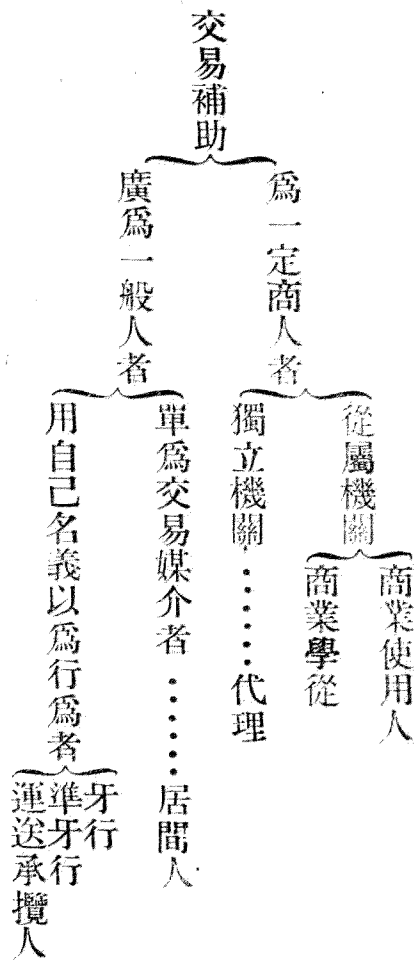 交易補助
爲一定商人者
從屬機關
商業使用人
商業學從
獨立機關.......代理
廣爲一般人者
單爲交易媒介者......居間人
用自己名義以爲行爲者
牙行
準牙行
運送承攬人